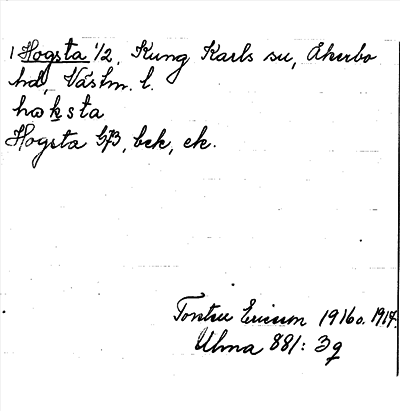 1 Hogsta 1/2, Kung Karls sn, Åkerbo
hd, Västm. l.
håksta
Hogsta by, bek, ek.
Torsten Ericsson 1916 o. 1917.
Ulma 881: 3 q